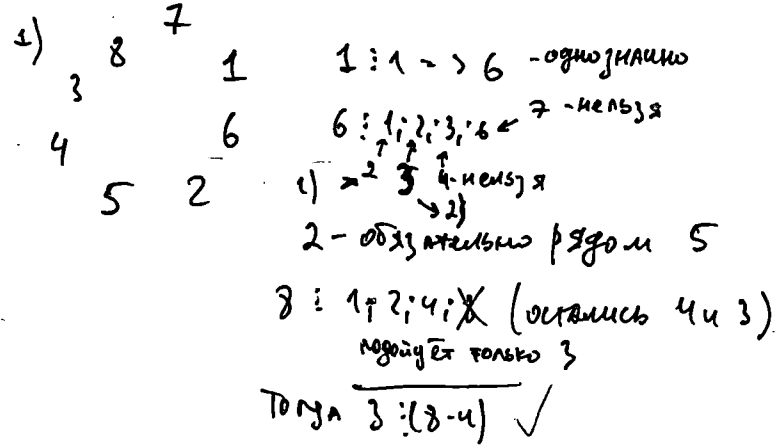 1)
7
8
1
3
6
4
5 2
1 ⋮ 1 => 6 - однозначно
6 ⋮ 1; 2; 3; 6 ← 7 - нельзя
1) 2 3 4 - нельзя
→ 2)
2 - обязательно рядом 5
8 ⋮ 1; 2; 4; (остались 4 и 3)
подойдёт только 3
Тогда 3 ⋮ (8-4) ✓